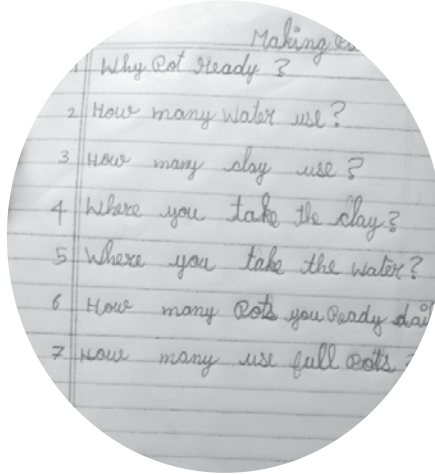 Making
1 Why Pot ready ?
2 How many Water use ?
3 How many clay use ?
4 Where you take the clay ?
5 Where you take the water ?
6 How many Pots you Ready
7 How many use full Pots ?